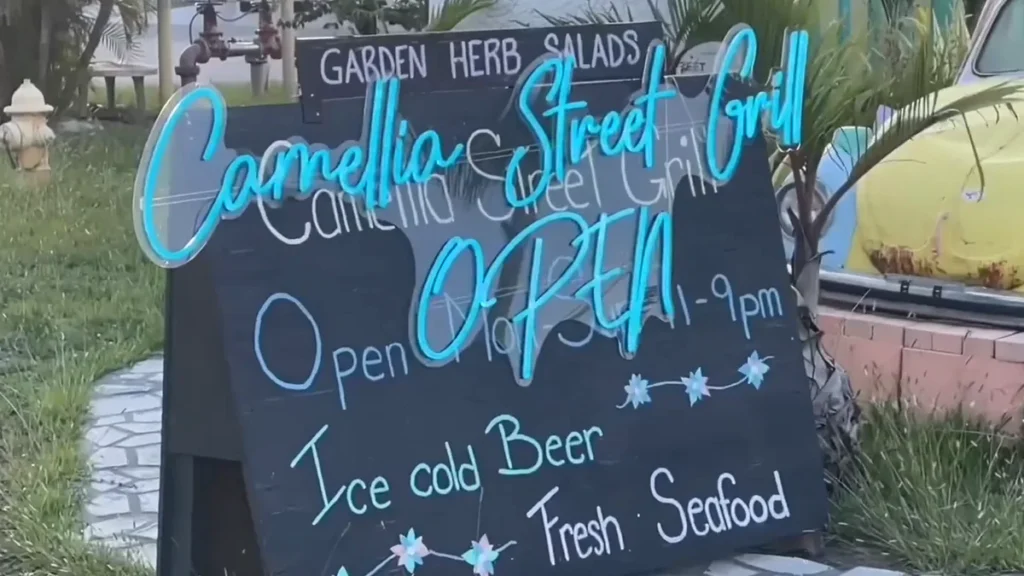 GARDEN HERB SALADS
Camellia Street Grill
Camellia Street Grill
OPEN
Open Mon-Sun 11-9pm
Ice cold Beer
Fresh Seafood